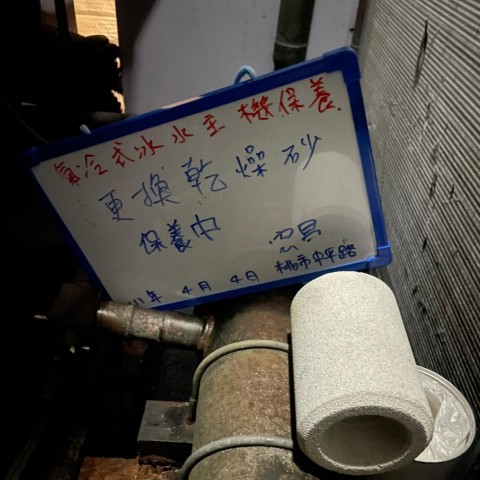 氣冷式冰水主機保養
更換乾燥砂
保養中
宏昌
11年 4月 4日 桃市中平路